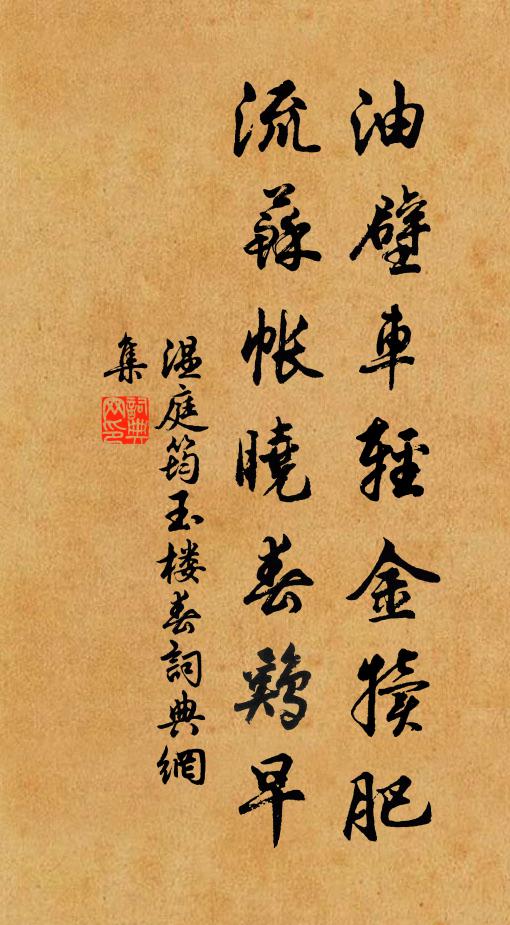 油壁車輕金犢肥
流蘇帳曉春鷄早
温庭筠玉楼春詞典網
集
詞典網印